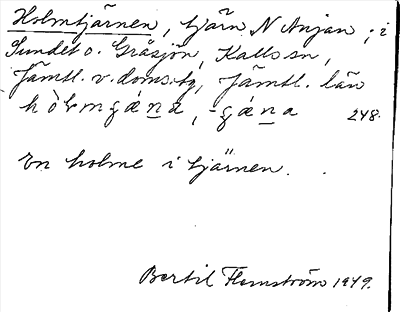 Holmtjärnen, tjärn N Anjan; i
Sundet o. Gråsjön, Kalls sn,
Jämtl. v. doms-tg, Jämtl. län
248.
En holme i tjärnen.
Bertil Flemström 1949.